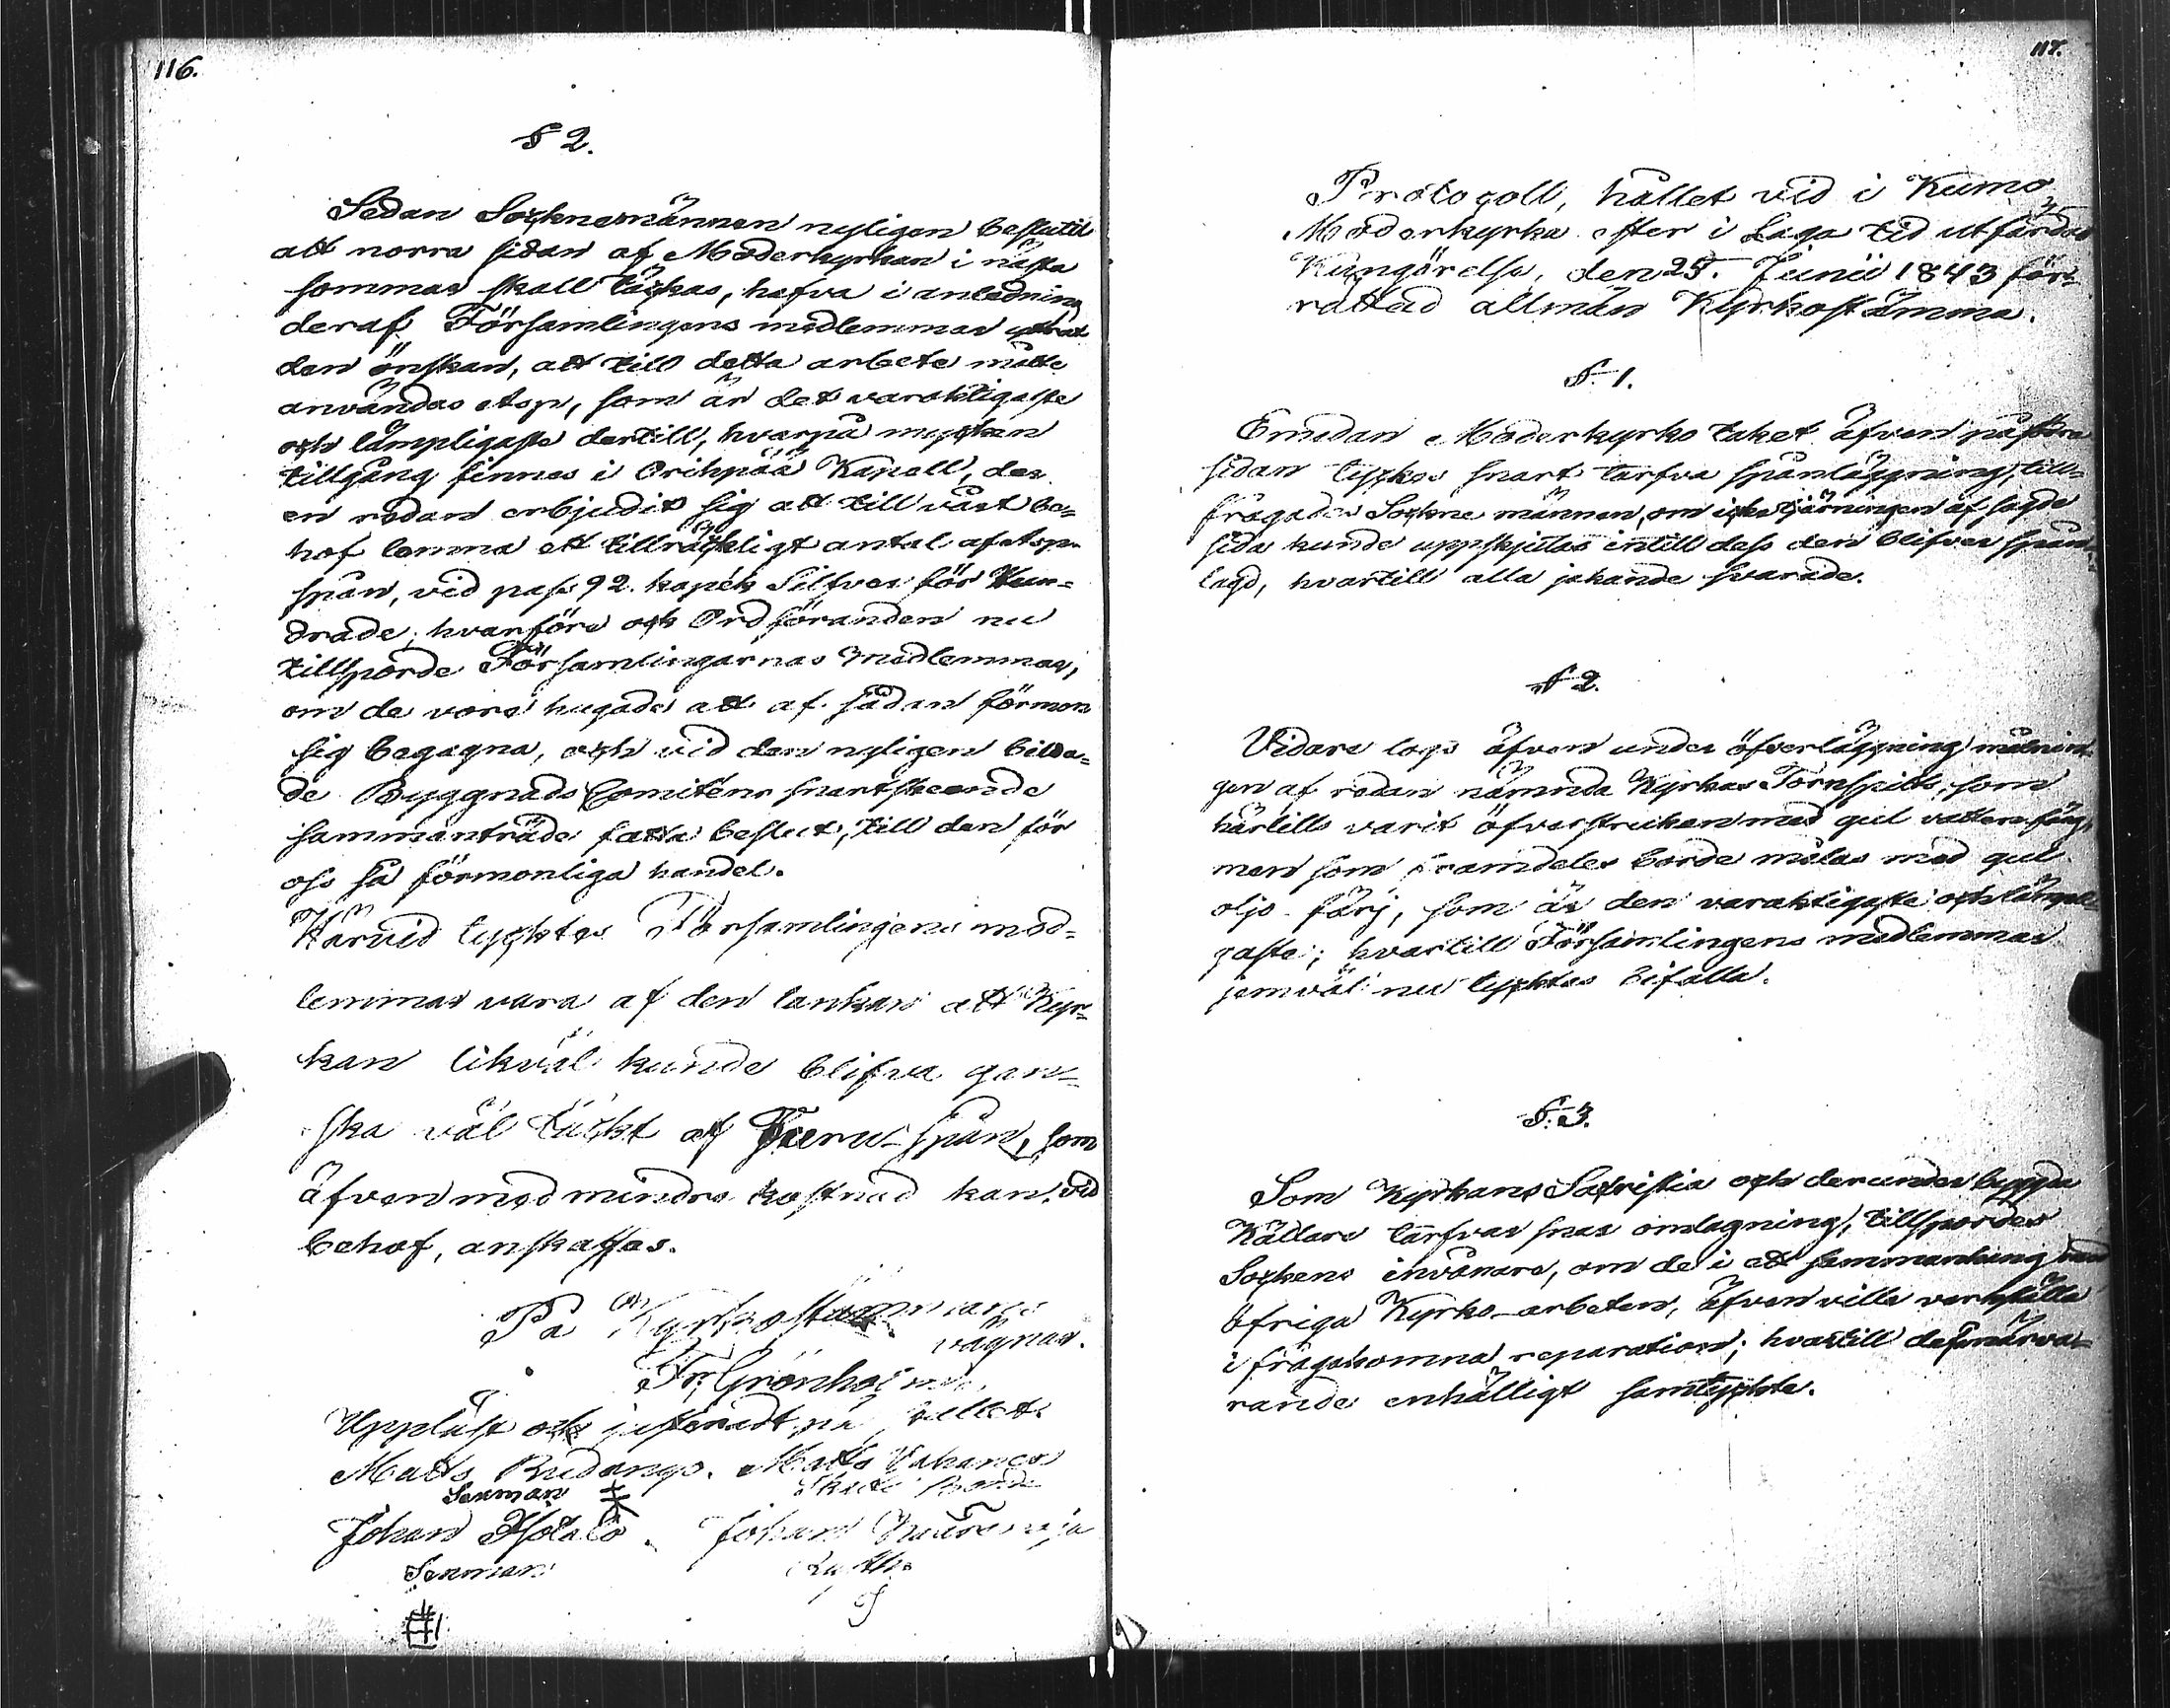 116.
§ 2.
Sedan Socknemännen nyligen beslutit
att norra sidan af Moderkyrkan i nästa
sommar skall täckas, hafva i anledning
deraf Församlingens medlemmar yttrat
den önskan, att till detta arbete måtte
användas Asp, som är det varaktigaste
och lämpligaste dertill, hvarpå mycken
tillgång finnes i Orihpää Kapell, der
en redan erbjudit sig att till vårt be=
hof lemna ett tillräckligt antal af Asp
spån, vid pass 92. kopek Silfver för Hun=
drade; hvarföre och Ordföranden nu
tillsporde Församlingarnas medlemmar,
om de voro hugade att af sådan förmon
sig begagna, och vid den nyligen bilda=
de Byggnads Comiténs snart skeende
sammanträde fatta beslut, till den för
oss så förmonliga handel.
Härvid tycktes Församlingens med=
lemmar vara af den tankan att Kyr=
kan likväl kunde blifva gan=
ska väl täckt af Furu-spån, som
äfven med mindre kostnad kan, vid
behof, anskaffas.
På Kyrkostämmans
vägnar.
Fr: Grönholm
Uppläst och justeradt på stället
Matts Rudanps. Matts Vahanen
Sexman
Johan Isotalo. Johan
Sexman
117.
Protocoll, hållet vid i Kumo
Moderkyrka efter i Laga tid utfärdad
Kungörelse, den 25. Junii 1843 för=
rättad allmän Kyrkostämma.
§. 1.
Emedan Moderkyrko taket äfven på södra
sidan tyckes snart tarfva spånläggning, till=
frågades Sockne männen, om icke tjärningen af sagde
sida kunde uppskjutas intill dess den blifver spån
lagd, hvartill alla jakande svarade.
§ 2.
Vidare togs äfven under öfverläggning målnin
gen af redan nämnda Kyrkas Tornspits, som
härtills varit öfverstruken med gul vattenfärg,
men som framdeles borde målas med gul
oljo-färj, som är den varaktigaste och lämpeli
gaste; hvartill Församlingens medlemmar
jemväl nu tycktes bifalla.
§. 3.
Som Kyrkans Sacristia och derunder byggda
Källare tarfvar snar omlagning, tillspordes
Sockens invånare, om de i ett sammanhang med
öfriga Kyrko-arbeten, äfven ville verkställa
i frågakomna reparation; hvartill de närva=
rande enhälligt samtyckte.